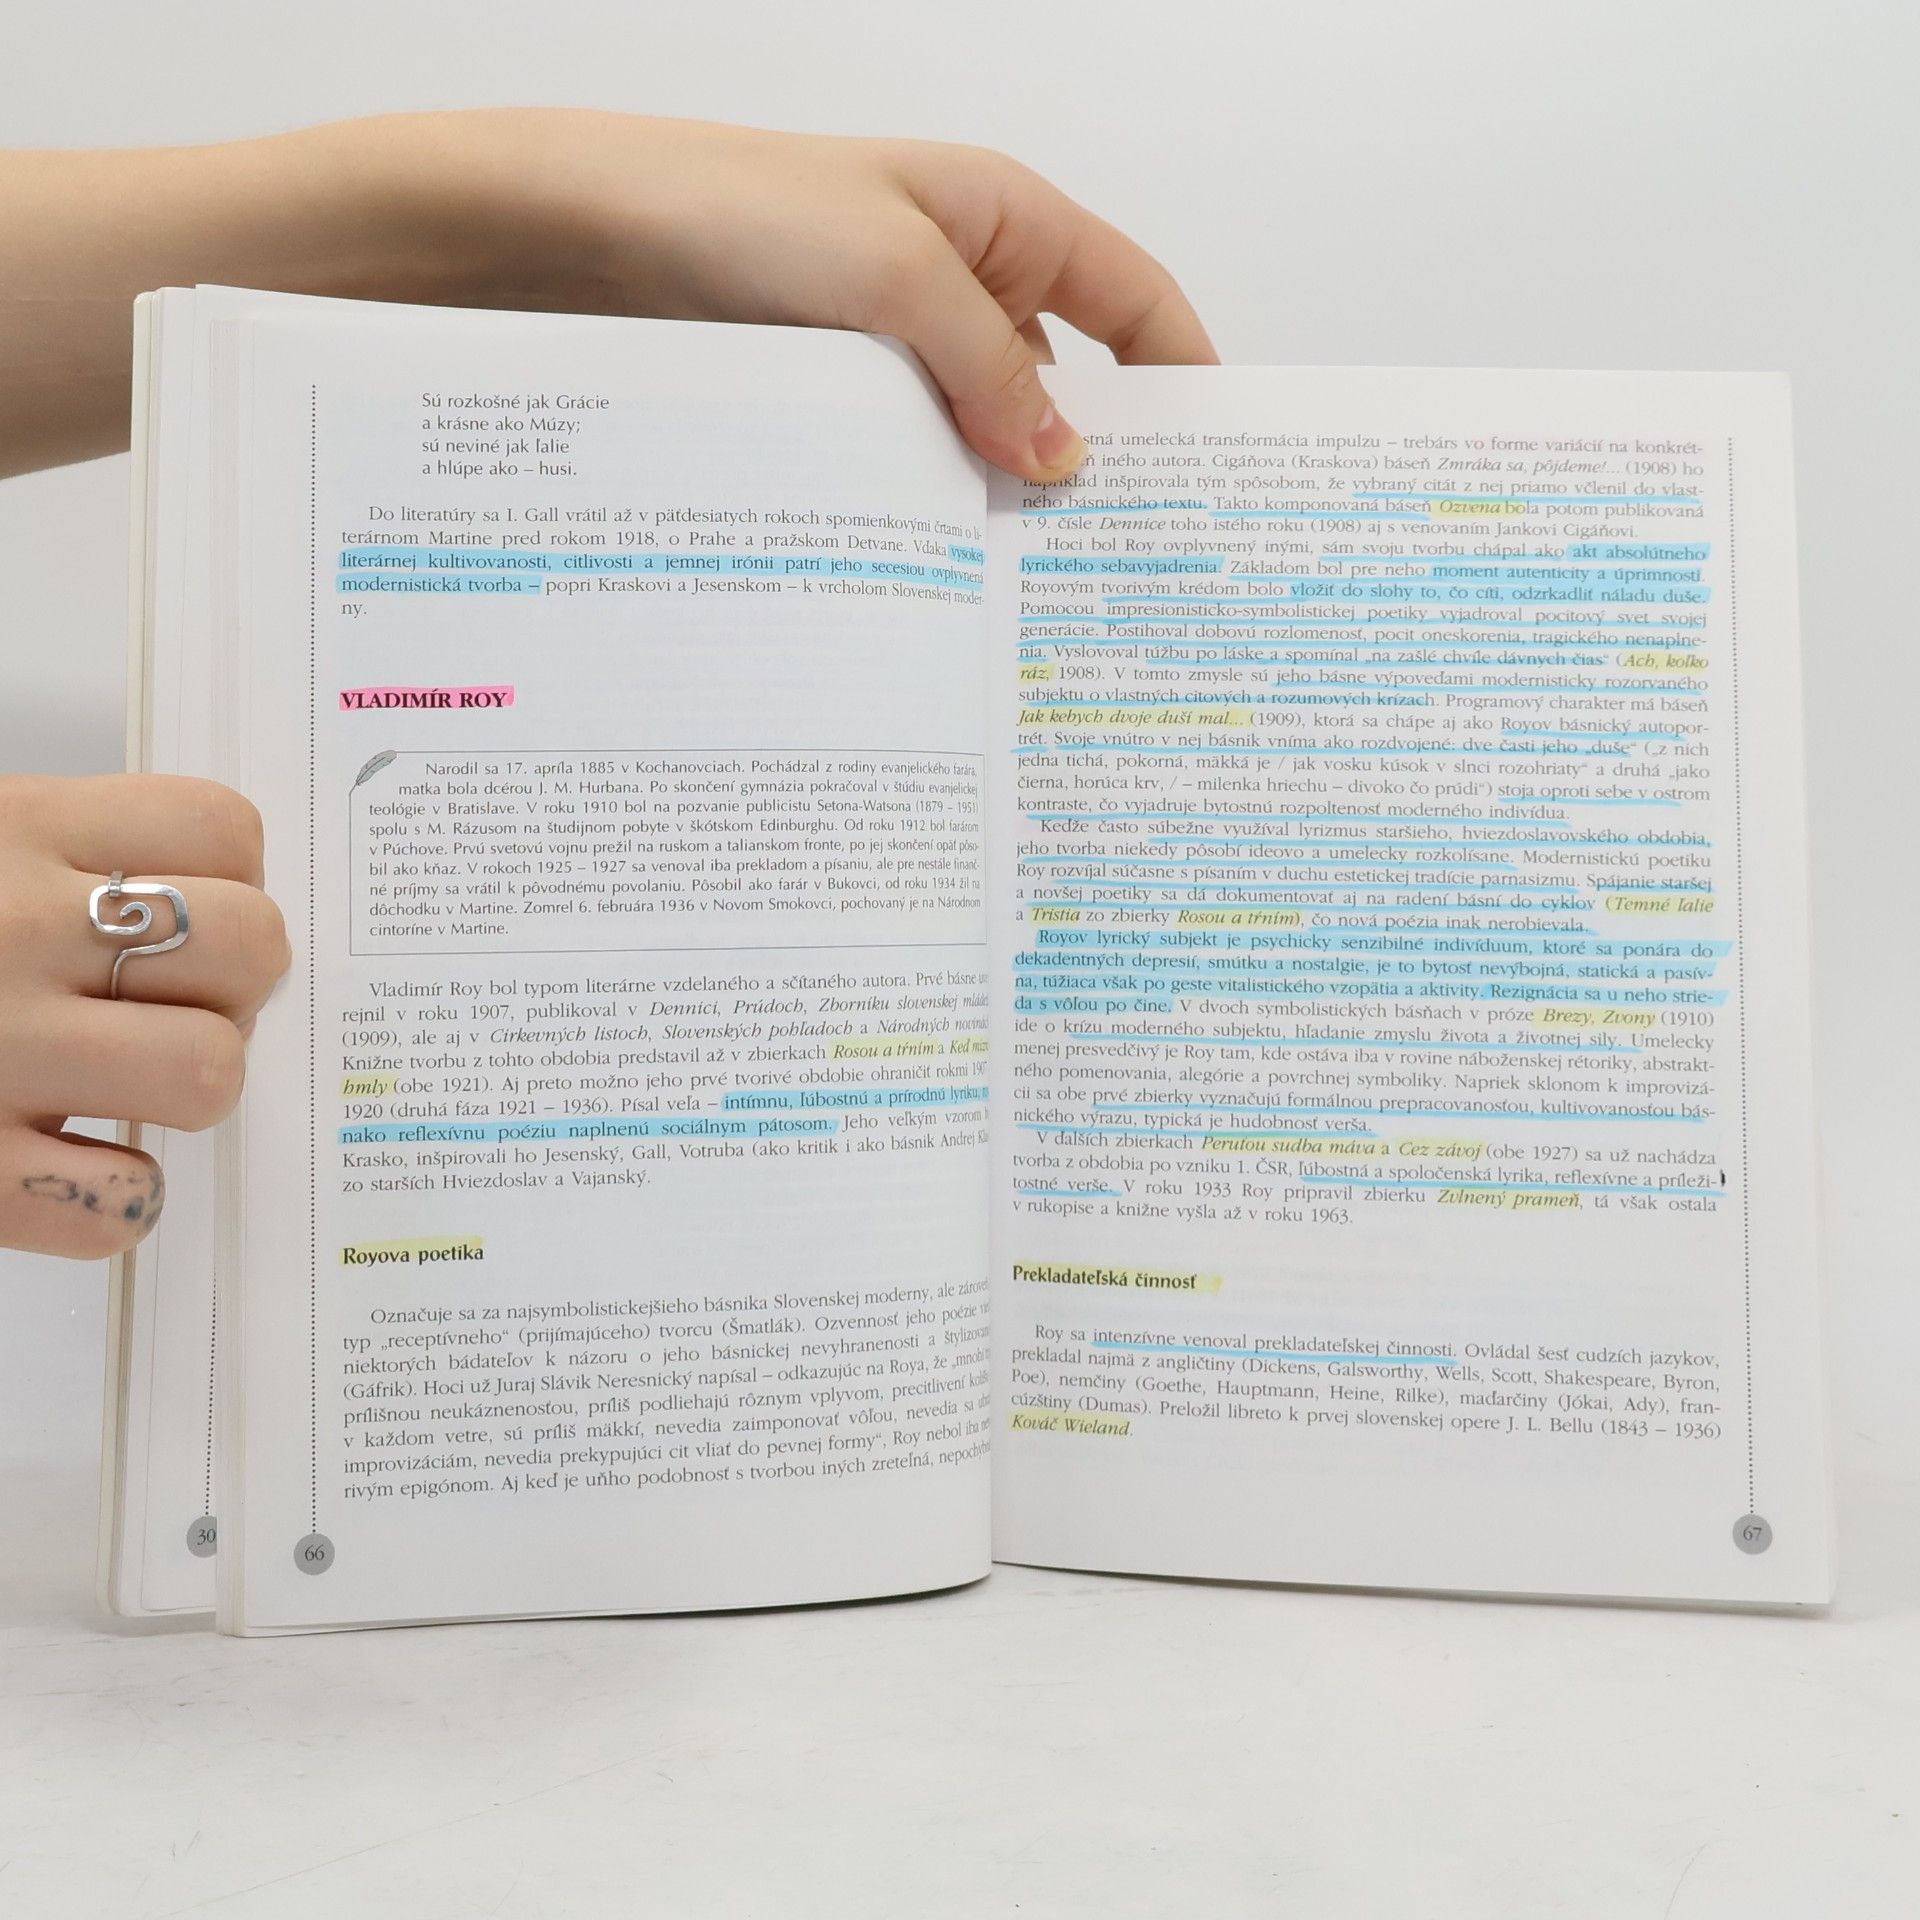 Sú rozkošné jak Grácie
a krásne ako Múzy;
sú neviné jak ľalie
a hlúpe ako – husi.
Do literatúry sa I. Gall vrátil až v päťdesiatych rokoch spomienkovými črtami o li-
terárnom Martine pred rokom 1918, o Prahe a pražskom Detvane. Vďaka vysokej
literárnej kultivovanosti, citlivosti a jemnej irónii patrí jeho secesiou ovplyvnená
modernistická tvorba – popri Kraskovi a Jesenskom – k vrcholom Slovenskej moder-
ny.
VLADIMÍR ROY
Narodil sa 17. apríla 1885 v Kochanovciach. Pochádzal z rodiny evanjelického farára,
matka bola dcérou J. M. Hurbana. Po skončení gymnázia pokračoval v štúdiu evanjelickej
teológie v Bratislave. V roku 1910 bol na pozvanie publicistu Setona-Watsona (1879 – 1951)
spolu s M. Rázusom na študijnom pobyte v škótskom Edinburghu. Od roku 1912 bol farárom
v Púchove. Prvú svetovú vojnu prežil na ruskom a talianskom fronte, po jej skončení opäť pôso-
bil ako kňaz. V rokoch 1925 – 1927 sa venoval iba prekladom a písaniu, ale pre nestále finanč-
né príjmy sa vrátil k pôvodnému povolaniu. Pôsobil ako farár v Bukovci, od roku 1934 žil na
dôchodku v Martine. Zomrel 6. februára 1936 v Novom Smokovci, pochovaný je na Národnom
cintoríne v Martine.
Vladimír Roy bol typom literárne vzdelaného a sčítaného autora. Prvé básne
rejnil v roku 1907, publikoval v Dennici, Prúdoch, Zborníku slovenskej mládeže
(1909), ale aj v Cirkevných listoch, Slovenských pohľadoch a Národných novinách
Knižne tvorbu z tohto obdobia predstavil až v zbierkach Rosou a tŕním a Keď miznú
hmly (obe 1921). Aj preto možno jeho prvé tvorivé obdobie ohraničiť rokmi 1907
1920 (druhá fáza 1921 – 1936). Písal veľa – intímnu, ľúbostnú a prírodnú lyriku,
nako reflexívnu poéziu naplnenú sociálnym pátosom. Jeho veľkým vzorom
Krasko, inšpirovali ho Jesenský, Gall, Votruba (ako kritik i ako básnik Andrej
zo starších Hviezdoslav a Vajanský.
Royova poetika
Označuje sa za najsymbolistickejšieho básnika Slovenskej moderny, ale zároveň
typ „receptívneho“ (prijímajúceho) tvorcu (Šmatlák). Ozvennosť jeho poézie
niektorých bádateľov k názoru o jeho básnickej nevyhranenosti a
(Gáfrik). Hoci už Juraj Slávik Neresnický napísal – odkazujúc na Roya, že „mnohí
prílišnou neukáznenosťou, príliš podliehajú rôznym vplyvom, precitlivení
v každom vetre, sú príliš mäkkí, nevedia zaimponovať vôľou, nevedia sa
improvizáciám, nevedia prekypujúci cit vliať do pevnej formy“, Roy nebol iba
rivým epigónom. Aj keď je uňho podobnosť s tvorbou iných zreteľná,
30
66
stná umelecká transformácia impulzu – trebárs vo forme variácií na konkrét-
iného autora. Cigáňova (Kraskova) báseň Zmráka sa, pôjdeme!... (1908) ho
napríklad inšpirovala tým spôsobom, že vybraný citát z nej priamo včlenil do vlast-
ného básnického textu. Takto komponovaná báseň Ozvena bola potom publikovaná
v 9. čísle Dennice toho istého roku (1908) aj s venovaním Jankovi Cigáňovi.
Hoci bol Roy ovplyvnený inými, sám svoju tvorbu chápal ako akt absolútneho
lyrického sebavyjadrenia. Základom bol pre neho moment autenticity a úprimnosti.
Royovým tvorivým krédom bolo vložiť do slohy to, čo cíti, odzrkadliť náladu duše.
Pomocou impresionisticko-symbolistickej poetiky vyjadroval pocitový svet svojej
generácie. Postihoval dobovú rozlomenosť, pocit oneskorenia, tragického nenaplne-
nia. Vyslovoval túžbu po láske a spomínal „na zašlé chvíle dávnych čias“ (Ach, koľko
ráz, 1908). V tomto zmysle sú jeho básne výpoveďami modernisticky rozorvaného
subjektu o vlastných citových a rozumových krízach. Programový charakter má báseň
Jak kebych dvoje duší mal... (1909), ktorá sa chápe aj ako Royov básnický autopor-
trét. Svoje vnútro v nej básnik vníma ako rozdvojené: dve časti jeho „duše“ („z nich
jedna tichá, pokorná, mäkká je / jak vosku kúsok v slnci rozohriaty“ a druhá „jako
čierna, horúca krv, / – milenka hriechu – divoko čo prúdi“) stoja oproti sebe v ostrom
kontraste, čo vyjadruje bytostnú rozpoltenosť moderného indivídua.
Keďže často súbežne využíval lyrizmus staršieho, hviezdoslavovského obdobia,
jeho tvorba niekedy pôsobí ideovo a umelecky rozkolísane. Modernistickú poetiku
Roy rozvíjal súčasne s písaním v duchu estetickej tradície parnasizmu. Spájanie staršej
a novšej poetiky sa dá dokumentovať aj na radení básní do cyklov (Temné ľalie
a Tristia zo zbierky Rosou a tŕním), čo nová poézia inak nerobievala.
Royov lyrický subjekt je psychicky senzibilné indivíduum, ktoré sa ponára do
dekadentných depresií, smútku a nostalgie, je to bytosť nevýbojná, statická a pasív-
na, túžiaca však po geste vitalistického vzopätia a aktivity. Rezignácia sa u neho strie-
da s vôľou po čine. V dvoch symbolistických básňach v próze Brezy, Zvony (1910)
ide o krízu moderného subjektu, hľadanie zmyslu života a životnej sily. Umelecky
menej presvedčivý je Roy tam, kde ostáva iba v rovine náboženskej rétoriky, abstrakt-
ného pomenovania, alegórie a povrchnej symboliky. Napriek sklonom k improvizá-
cii sa obe prvé zbierky vyznačujú formálnou prepracovanosťou, kultivovanosťou bás-
nického výrazu, typická je hudobnosť verša.
V ďalších zbierkach Peruťou sudba máva a Cez závoj (obe 1927) sa už nachádza
tvorba z obdobia po vzniku 1. ČSR, ľúbostná a spoločenská lyrika, reflexívne a príleži-
tostné verše. V roku 1933 Roy pripravil zbierku Zvlnený prameň, tá však ostala
v rukopise a knižne vyšla až v roku 1963.
Prekladateľská činnosť
Roy sa intenzívne venoval prekladateľskej činnosti. Ovládal šesť cudzích jazykov,
prekladal najmä z angličtiny (Dickens, Galsworthy, Wells, Scott, Shakespeare, Byron,
Poe), nemčiny (Goethe, Hauptmann, Heine, Rilke), maďarčiny (Jókai, Ady), fran-
cúzštiny (Dumas). Preložil libreto k prvej slovenskej opere J. L. Bellu (1843 – 1936)
Kováč Wieland.
67